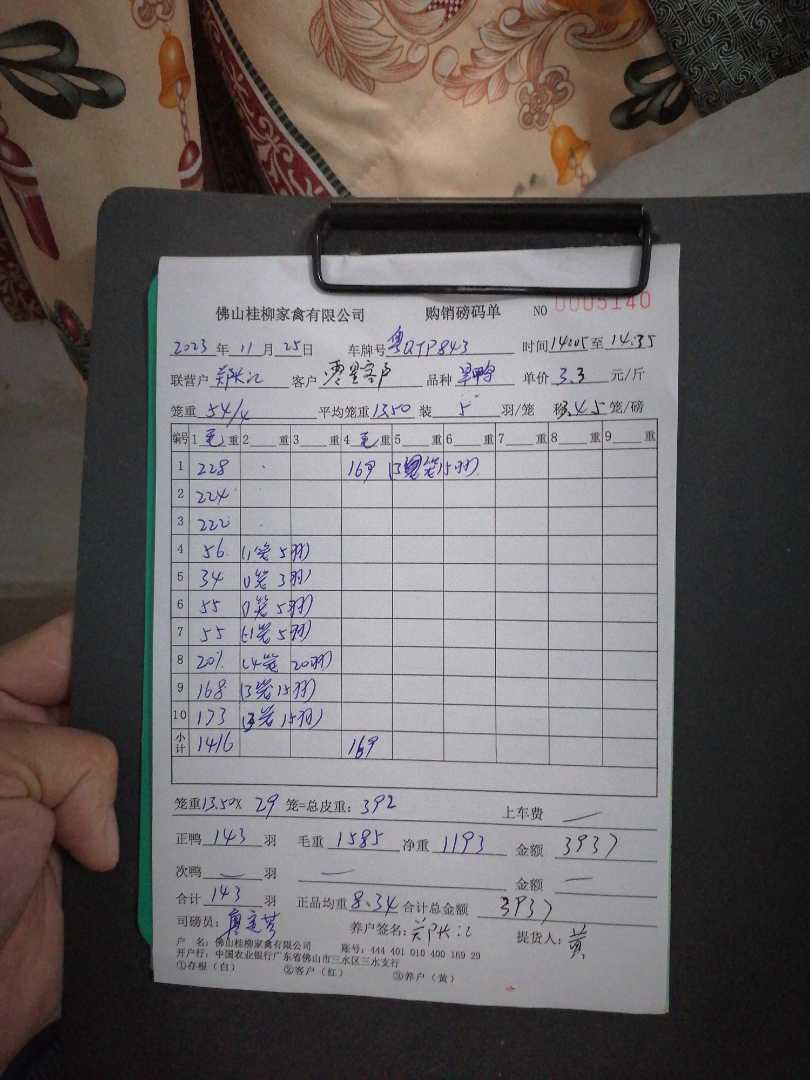 佛山桂柳家禽有限公司 购销磅码单 NO 0005140
2023 年 11 月 25 日 车牌号 粤QTP843 时间 14:05 至 14:35
联营户 郑长江 客户 零星客户 品种 单价 3.3 元/斤
笼重 54/4 平均笼重 13.50 装 5 羽/笼 称 4.5 笼/磅
编号 1 毛 重 2 重 3 重 4 毛 重 5 重 6 重 7 重 8 重 9 重
1 228 169 (3笼15羽)
2 224
3 222
4 56 (1笼5羽)
5 34 (1笼3羽)
6 55 (1笼5羽)
7 55 (1笼5羽)
8 201 (4笼20羽)
9 168 (3笼15羽)
10 173 (3笼15羽)
小计 1416 169
笼重 13.50 × 29 笼=总皮重: 392 上车费 —
正鸭 143 羽 毛重 1585 净重 1193 金额 3937
次鸭 — 羽 — 金额 —
合计 143 羽 正品均重 8.34 合计总金额 3937
司磅员: 养户签名: 郑长江 提货人: 黄
户 名: 佛山桂柳家禽有限公司 账号: 444 401 010 400 169 29
开户行: 中国农业银行广东省佛山市三水区三水支行
①存根(白) ②客户(红) ③养户(黄)